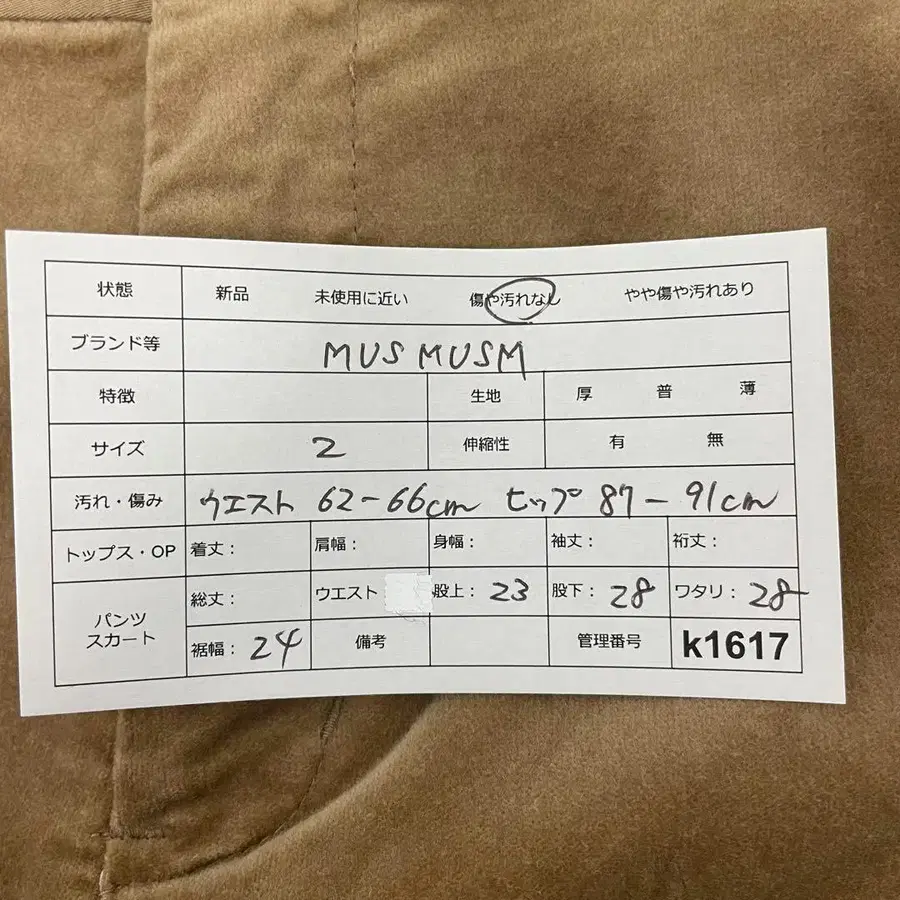 状態 新品 未使用に近い 傷や汚れなし やや傷や汚れあり
ブランド等 MUS MUSM
特徴 生地 厚 普 薄
サイズ 2 伸縮性 有 無
汚れ・傷み ウエスト 62-66cm ヒップ 87-91cm
トップス・OP 着丈: 肩幅: 身幅: 袖丈: 裄丈:
パンツ
スカート
総丈: ウエスト 股上: 23 股下: 28 ワタリ: 28
裾幅: 24 備考 管理番号 k1617